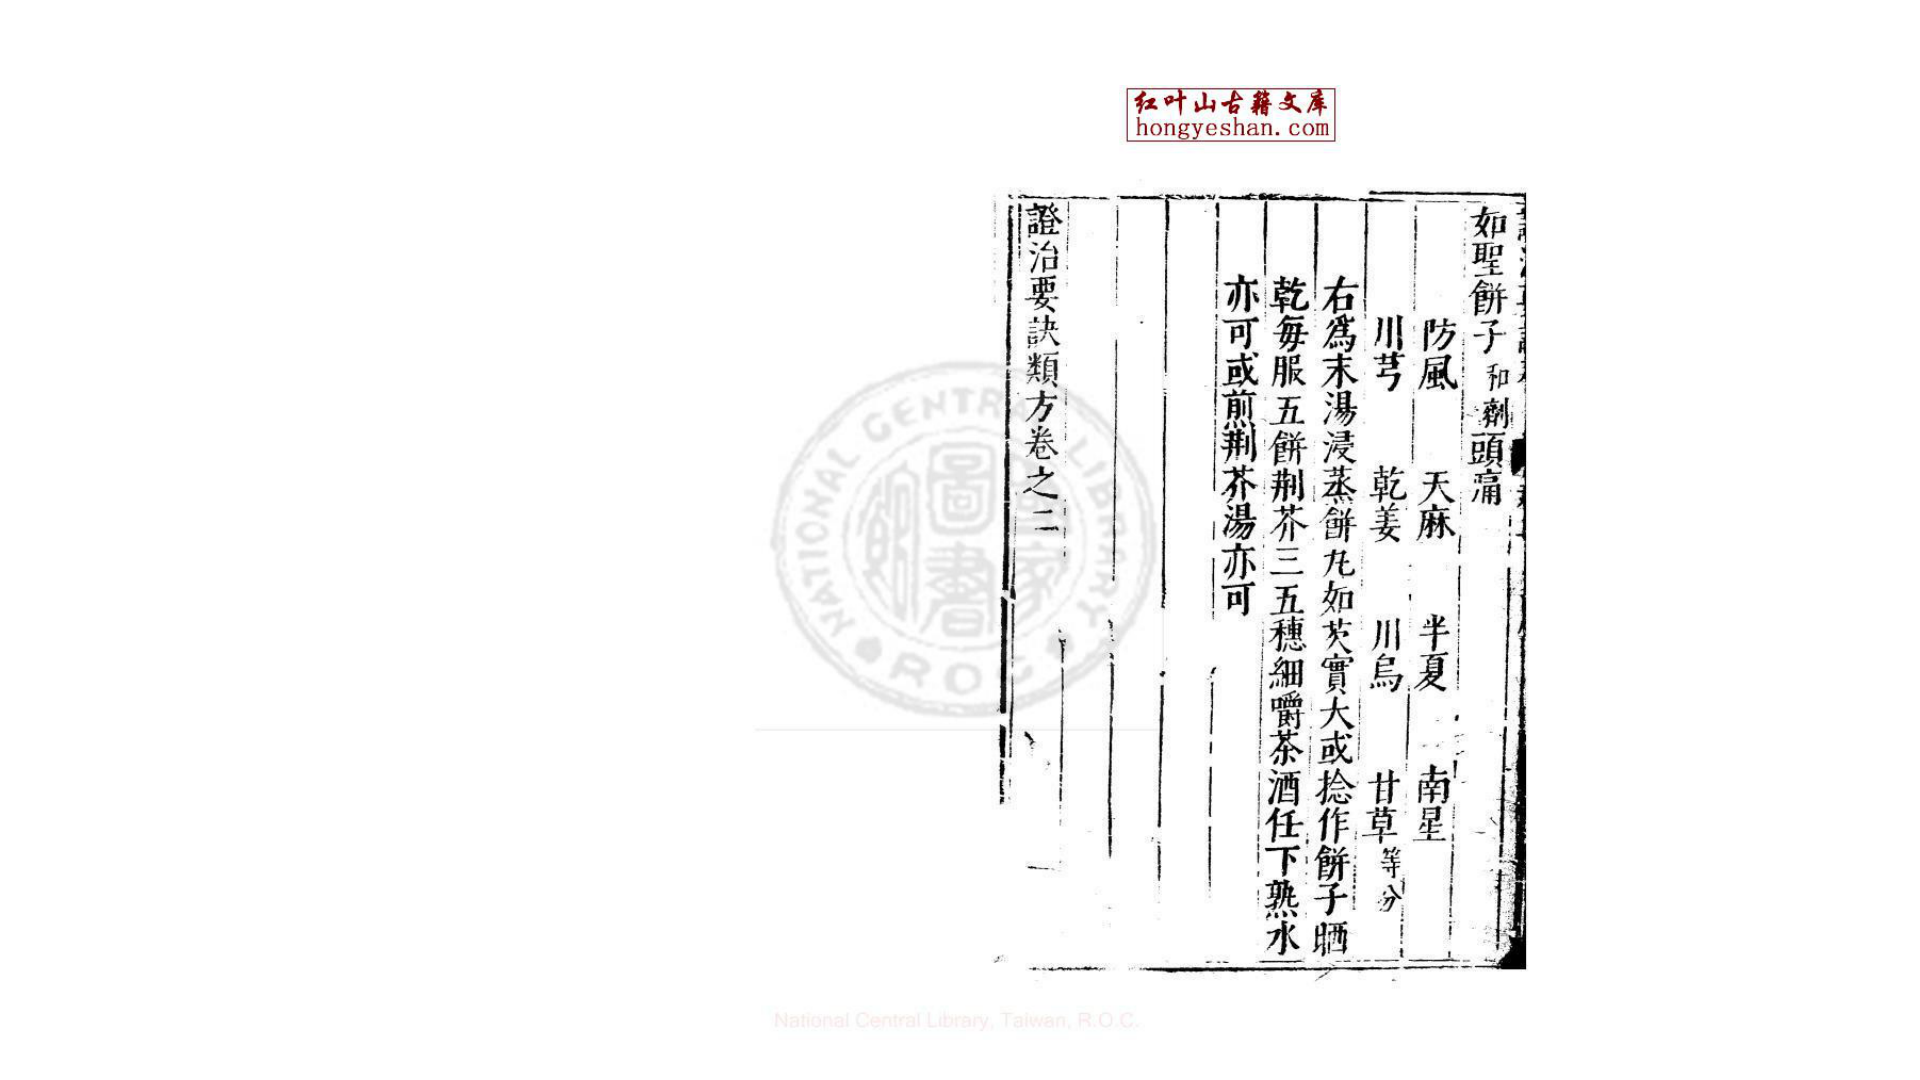 红叶山古籍文库
hongyeshan.com
如聖餅子 和劑 頭痛
防風 天麻 半夏 南星
川芎 乾姜 川烏 甘草 等分
右爲末湯浸蒸餅丸如芡實大或捻作餅子晒
乾每服五餅荆芥三五穗細嚼茶酒任下熟水
亦可或煎荆芥湯亦可
證治要訣類方卷之二
NATIONAL CENTRAL LIBRARY
R.O.C
國家圖書館
National Central Library, Taiwan, R.O.C.